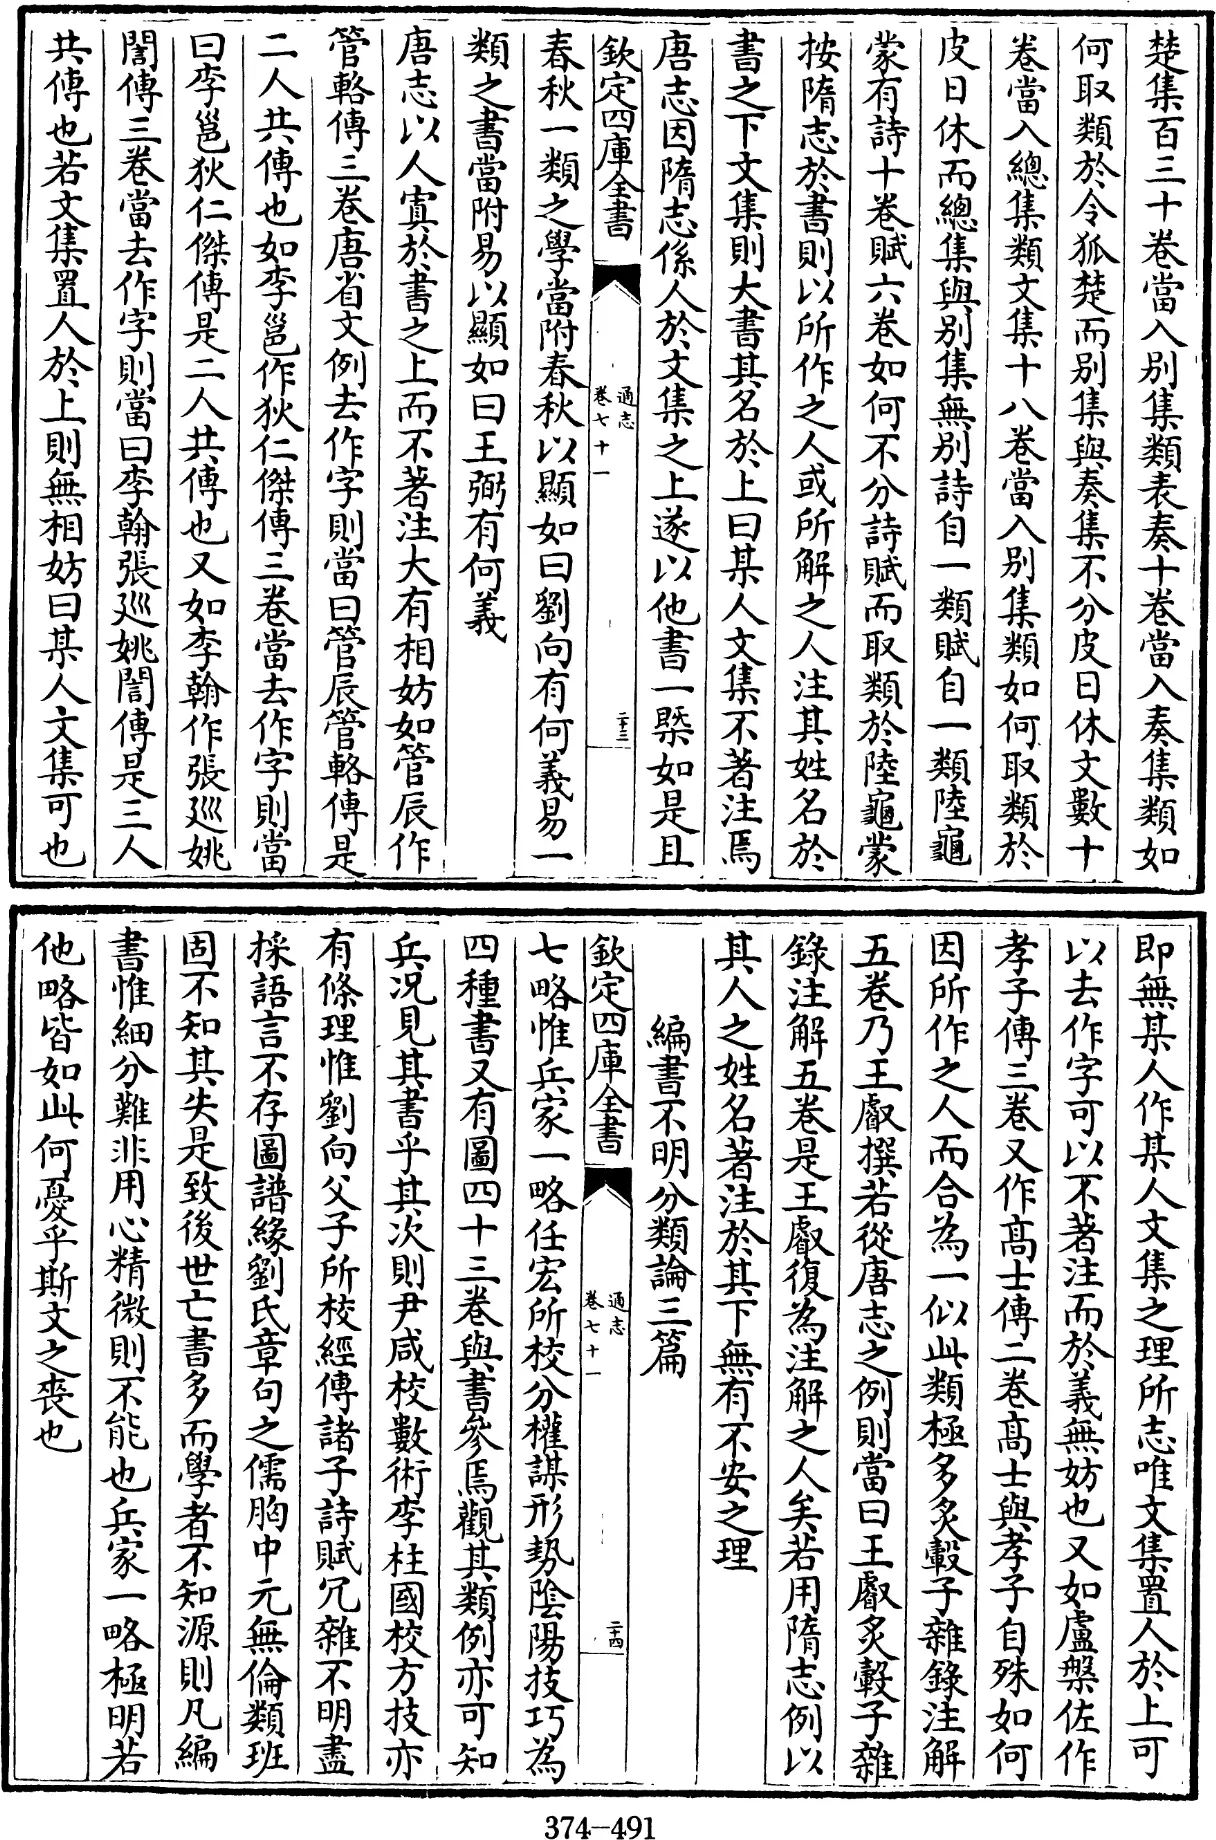 楚集百三十卷當入别集類表奏十卷當入奏集類如
何取類於令狐楚而别集與奏集不分皮日休文數十
卷當入總集類文集十八卷當入别集類如何取類於
皮日休而總集與别集無别詩自一類賦自一類陸龜
蒙有詩十卷賦六卷如何不分詩賦而取類於陸龜蒙
按隋志於書則以所作之人或所解之人注其姓名於
書之下文集則大書其名於上曰某人文集不著注焉
唐志因隋志係人於文集之上遂以他書一槩如是且
欽定四庫全書
通志
卷七十一
二十三
春秋一類之學當附春秋以顯如曰劉向有何義易一
類之書當附易以顯如曰王弼有何義
唐志以人寘於書之上而不著注大有相妨如管辰作
管輅傳三卷唐省文例去作字則當曰管辰管輅傳是
二人共傳也如李邕作狄仁傑傳三卷當去作字則當
曰李邕狄仁傑傳是二人共傳也又如李翰作張廵姚
誾傳三卷當去作字則當曰李翰張廵姚誾傳是三人
共傳也若文集置人於上則無相妨曰某人文集可也
即無某人作某人文集之理所志唯文集置人於上可
以去作字可以不著注而於義無妨也又如盧槃佐作
孝子傳三卷又作高士傳二卷高士與孝子自殊如何
因所作之人而合為一似此類極多炙轂子雜錄注解
五卷乃王叡撰若從唐志之例則當曰王叡炙轂子雜
錄注解五卷是王叡復為注解之人矣若用隋志例以
其人之姓名著注於其下無有不安之理
編書不明分類論三篇
欽定四庫全書
通志
卷七十一
二十四
七略惟兵家一略任宏所校分權謀形勢陰陽技巧為
四種書又有圖四十三卷與書參焉觀其類例亦可知
兵况見其書乎其次則尹咸校數術李柱國校方技亦
有條理惟劉向父子所校經傳諸子詩賦冗雜不明盡
採語言不存圖譜緣劉氏章句之儒胸中元無倫類班
固不知其失是致後世亡書多而學者不知源則凡編
書惟細分難非用心精微則不能也兵家一略極明若
他略皆如此何憂乎斯文之喪也
374-491